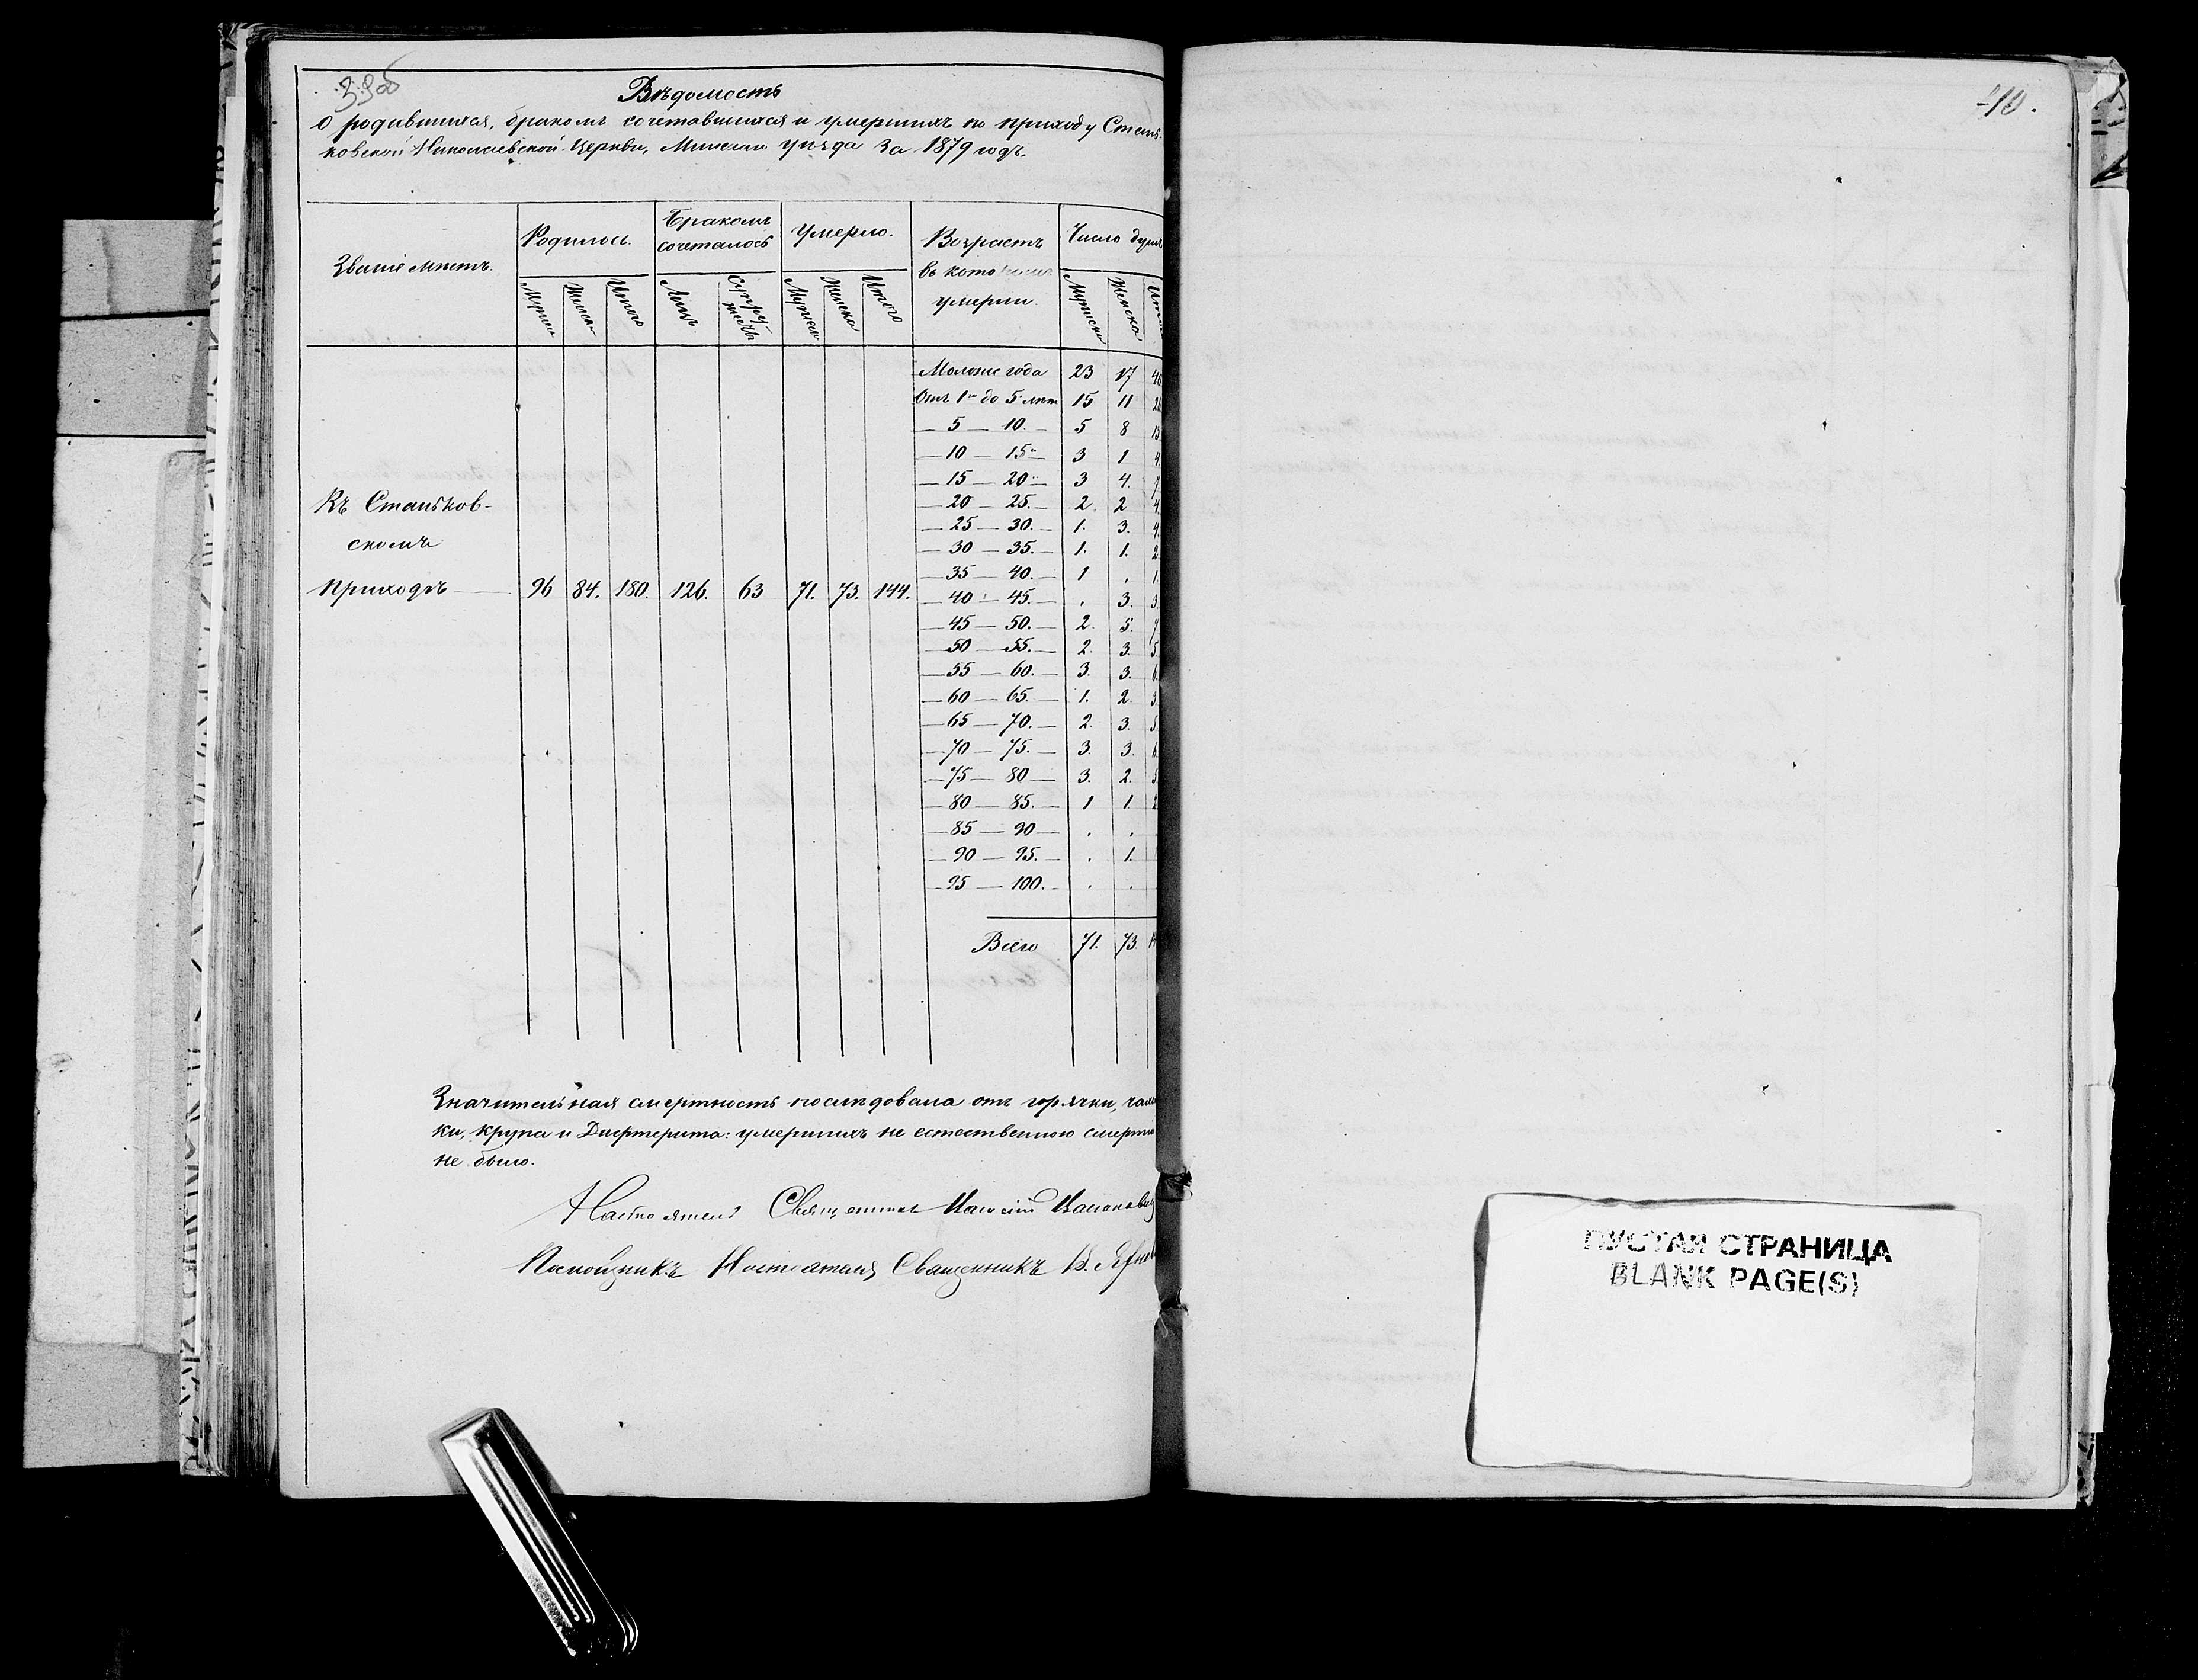 39об
Вѣдомость
О родившихся, бракомъ сочетавшихся и умершихъ по приходу Стань-
ковской Николаевской Церкви, Минскаго уѣзда за 1879 годъ.
Званіе мѣстъ. Родилось. Бракомъ сочеталось Умерло. Возрастъ въ котором умерли. Число душъ
Мужска Женска Итого Лицъ Супружествъ Мужска Женска Итого Мужска Женска
Моложе года 23 17 40
Отъ 1 го до 5 лѣт 15 11 26
5 — 10. 5 8 13
10 — 15 3 1 4
15 — 20 3 4. 7
20 — 25. 2. 2 4.
25 — 30. 1. 3. 4.
30 — 35. 1. 1. 2.
35 — 40. 1 . 1.
40 — 45. . 3. 3.
45 — 50. 2. 5. 7
50 — 55. 2. 3. 5.
55 — 60. 3. 3. 6.
60 — 65. 1. 2. 3.
65 — 70. 2. 3. 5.
70 — 75. 3. 3. 6.
75 — 80 3. 2. 5.
80 — 85. 1 1. 2.
85 — 90 . .
90 — 95. . 1.
95 — 100. . .
Всего 71. 73.
Въ Станьков-
скомъ
Приходѣ 96 84. 180. 126. 63 71. 73. 144.
Значительная смертность послѣдовала отъ горячки,
ки, крупа и Дифтерита: умершихъ не естественною смертію
не было.
Настоятель Священникъ
Помощникъ Настоятеля Священникъ
40.
ПУСТАЯ СТРАНИЦА
BLANK PAGE(S)